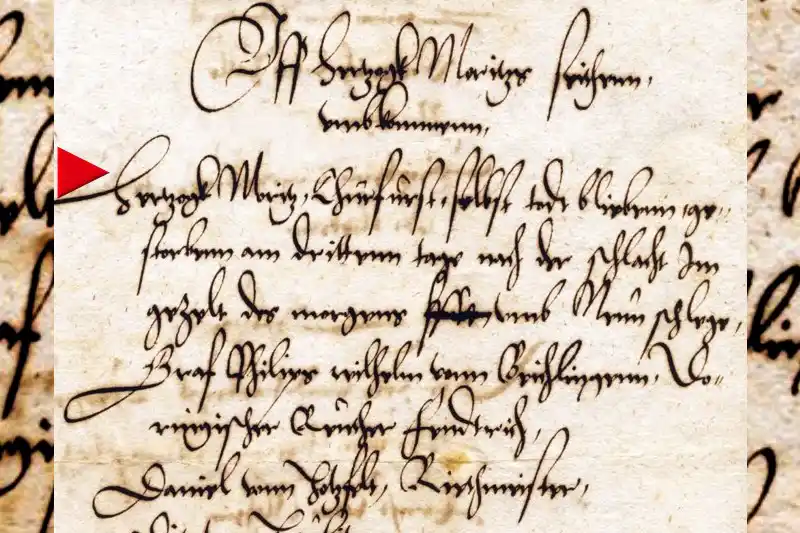 Uff Hertzogk Moritzs seithenn,
umbkommenn,
Hertzogk Moritz, Churfurst, selbst todt bliebenn, ge-
storbenn am drittenn tage nach der schlacht Im
gezelt des morgens umb Neun schlege,
Graf Philips wilhelm vonn Beichlingenn, Do-
ringischer
Daniel vonn Hotzfelt, Rithmeister,